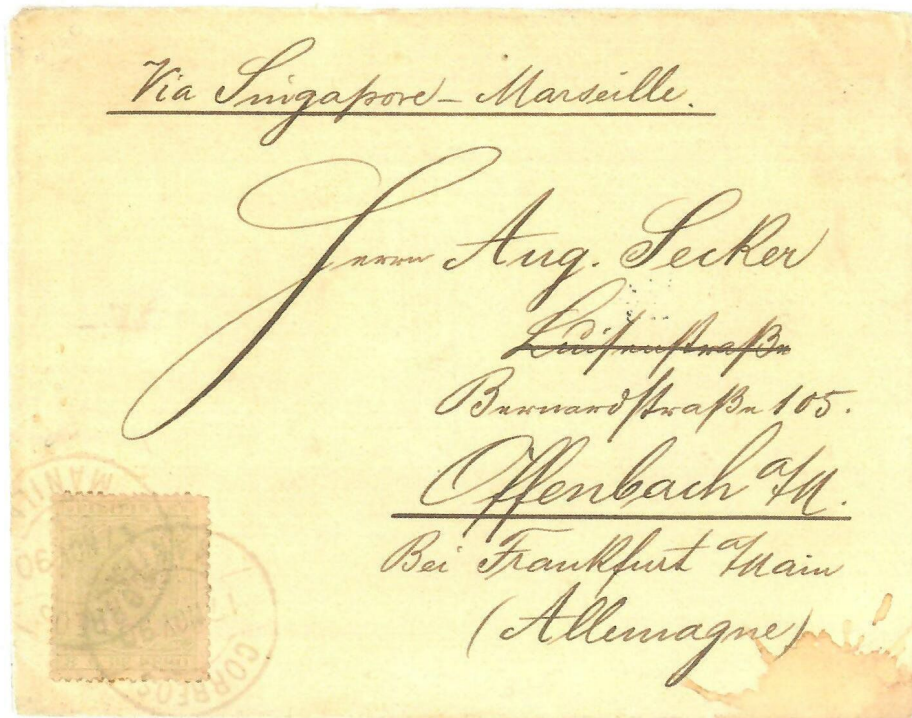 Via Singapore – Marseille.
Herrn Aug. Secker
Luisenstraße
Bernardstraße 105.
Offenbach a/M.
Bei Frankfurt a/Main
(Allemagne)
MANILA
CORREOS